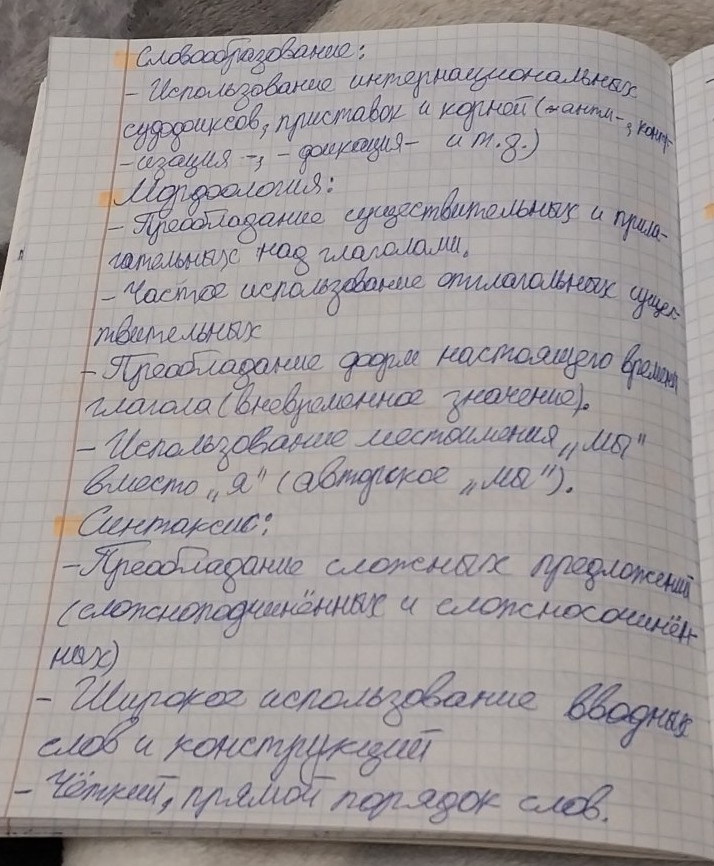 Словообразование:
- Использование интернациональных
суффиксов, приставок и корной (-анти-, конт-
-изация -, - фикация- и т.д.)
Морфология:
- Преобладание существительных и прила-
гательных над глаголами.
- Частое использование отглагольных сущес-
твительных
- Преобладание форм настоящего времени
глагола (вневременное значение).
- Использование местоимения „мы"
вместо „я" (авторское „мы").
Синтаксис:
- Преобладание сложных предложений
(сложноподчинённых и сложносочинён-
ных)
- Широкое использование вводных
слов и конструкций
- Чёткий, прямой порядок слов.